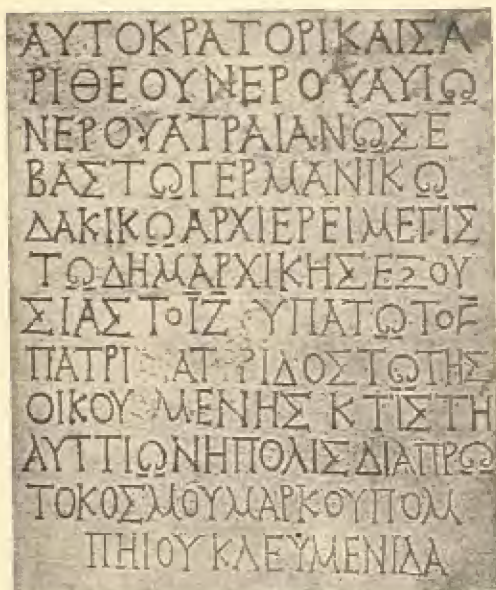 ΑΥΤΟΚΡΑΤΟΡΙΚΑΙΣΑ
ΡΙΘΕΟΥΝΕΡΟΥΑΥΙΩ
ΝΕΡΟΥΑΤΡΑΙΑΝΩΣΕ
ΒΑΣΤΩΓΕΡΜΑΝΙΚΩ
ΔΑΚΙΚΩΑΡΧΙΕΡΕΙΜΕΓΙΣ
ΤΩΔΗΜΑΡΧΙΚΗΣΕΞΟΥ
ΣΙΑΣΤΟΙΖ ΥΠΑΤΩΤΟΕ
ΠΑΤΡΙ ΑΤΡΙΔΟΣΤΩΤΗΣ
ΟΙΚΟΥΜΕΝΗΣΚΤΙΣΤΗ
ΛΥΤΤΙΩΝΗΠΟΛΙΣΔΙΑΠΡΩ
ΤΟΚΟΣΜΟΥΜΑΡΚΟΥΠΟΜ
ΠΗΙΟΥΚΛΕΥΜΕΝΙΔΑ